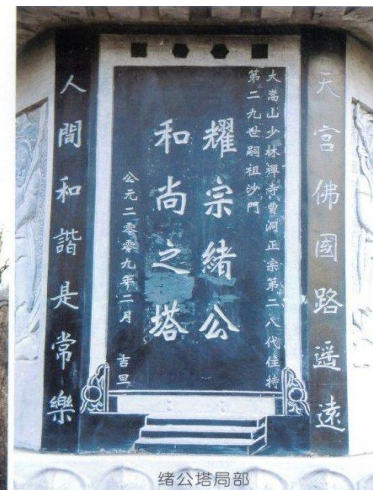 天宫佛國路遥遠
大嵩山少林禪寺曹洞正宗第二八代住持
第二九世嗣祖沙門
耀宗緒公
和尚之塔
公元二零零九年二月 吉旦
人間和諧是常樂
绪公塔局部